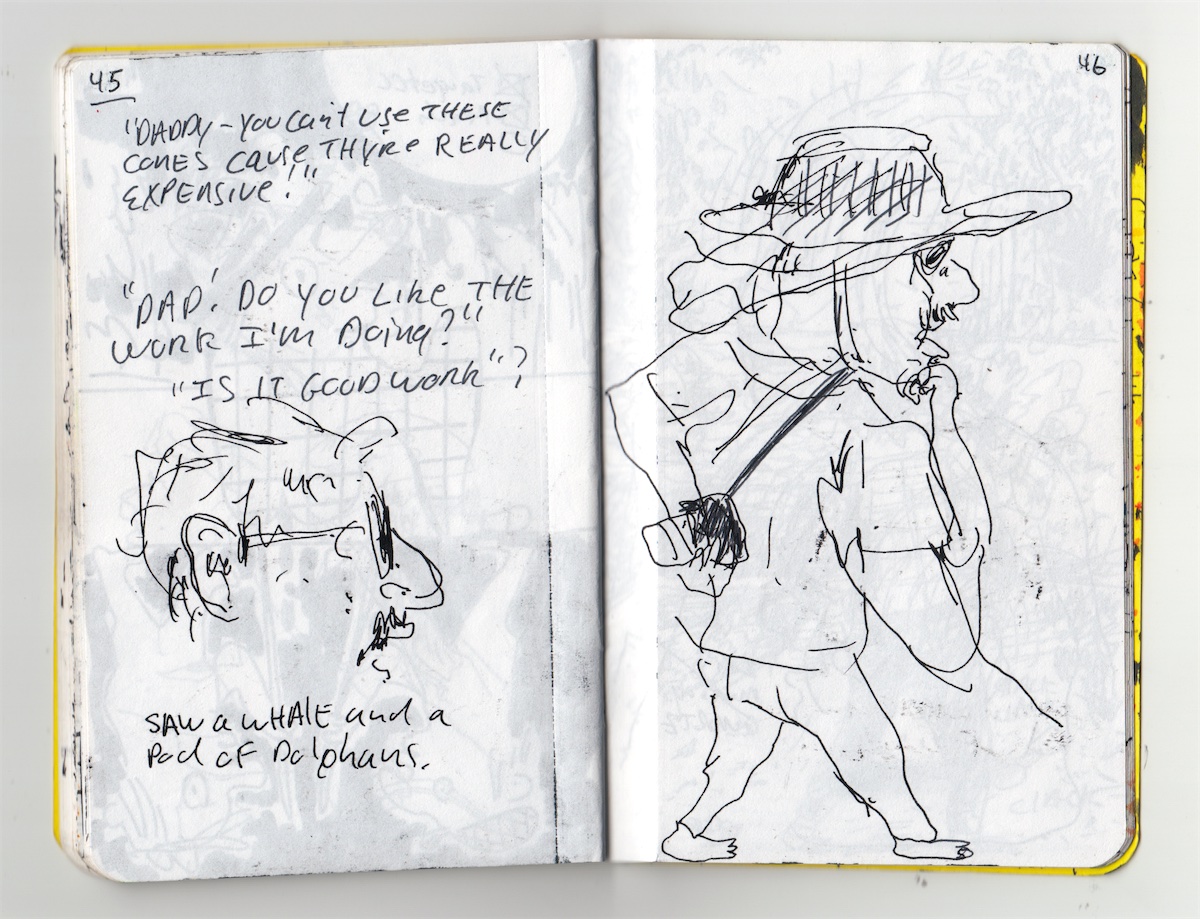 45
"DADDY - you can't use THESE
CONES cause THYRE REALLY
EXPENSIVE!"
"DAD! DO YOU LIKE THE
WORK I'M DOing?"
"IS IT GOOD WORK"?
SAW a WHALE and a
Pod of Dolphans.
46